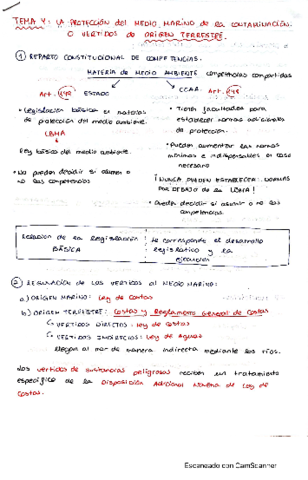 TEMA 4: LA PROTECCIÓN del MEDIO MARINO de la CONTAMINACIÓN
O VERTIDOS de ORIGEN TERRESTRE.
① REPARTO CONSTITUCIONAL DE COMPETENCIAS.
MATERIA de MEDIO AMBIENTE competencias compartidas
Art. 149 ESTADO
CCAA Art. 148
• Legislación básica en materias de protección del medio ambiente.
LBMA
Ley básica del medio ambiente.
• No pueden decidir si asumen o no las competencias
• Tienen facultades para establecer normas adicionales de protección.
• Pueden aumentar las normas mínimas e indispensables en caso necesario
¡NUNCA PUEDEN ESTABLECER NORMAS POR DEBAJO de la LBMA!
• Pueden decidir si asumir o no las competencias.
de la legislación BÁSICA
le corresponde el desarrollo legislativo y la ejecución
② REGULACIÓN DE LOS VERTIDOS AL MEDIO MARINO:
a) ORIGEN MARINO: Ley de Costas
b) ORIGEN TERRESTRE: Costas y Reglamento General de Costas
↳ VERTIDOS DIRECTOS: Ley de Costas
↳ VERTIDOS INDIRECTOS: Ley de Aguas
llegan al mar de manera indirecta mediante los ríos.
Los vertidos de sustancias peligrosas reciben un tratamiento
específico de la Disposición Adicional Novena de Ley de
Costas.
Escaneado con CamScanner